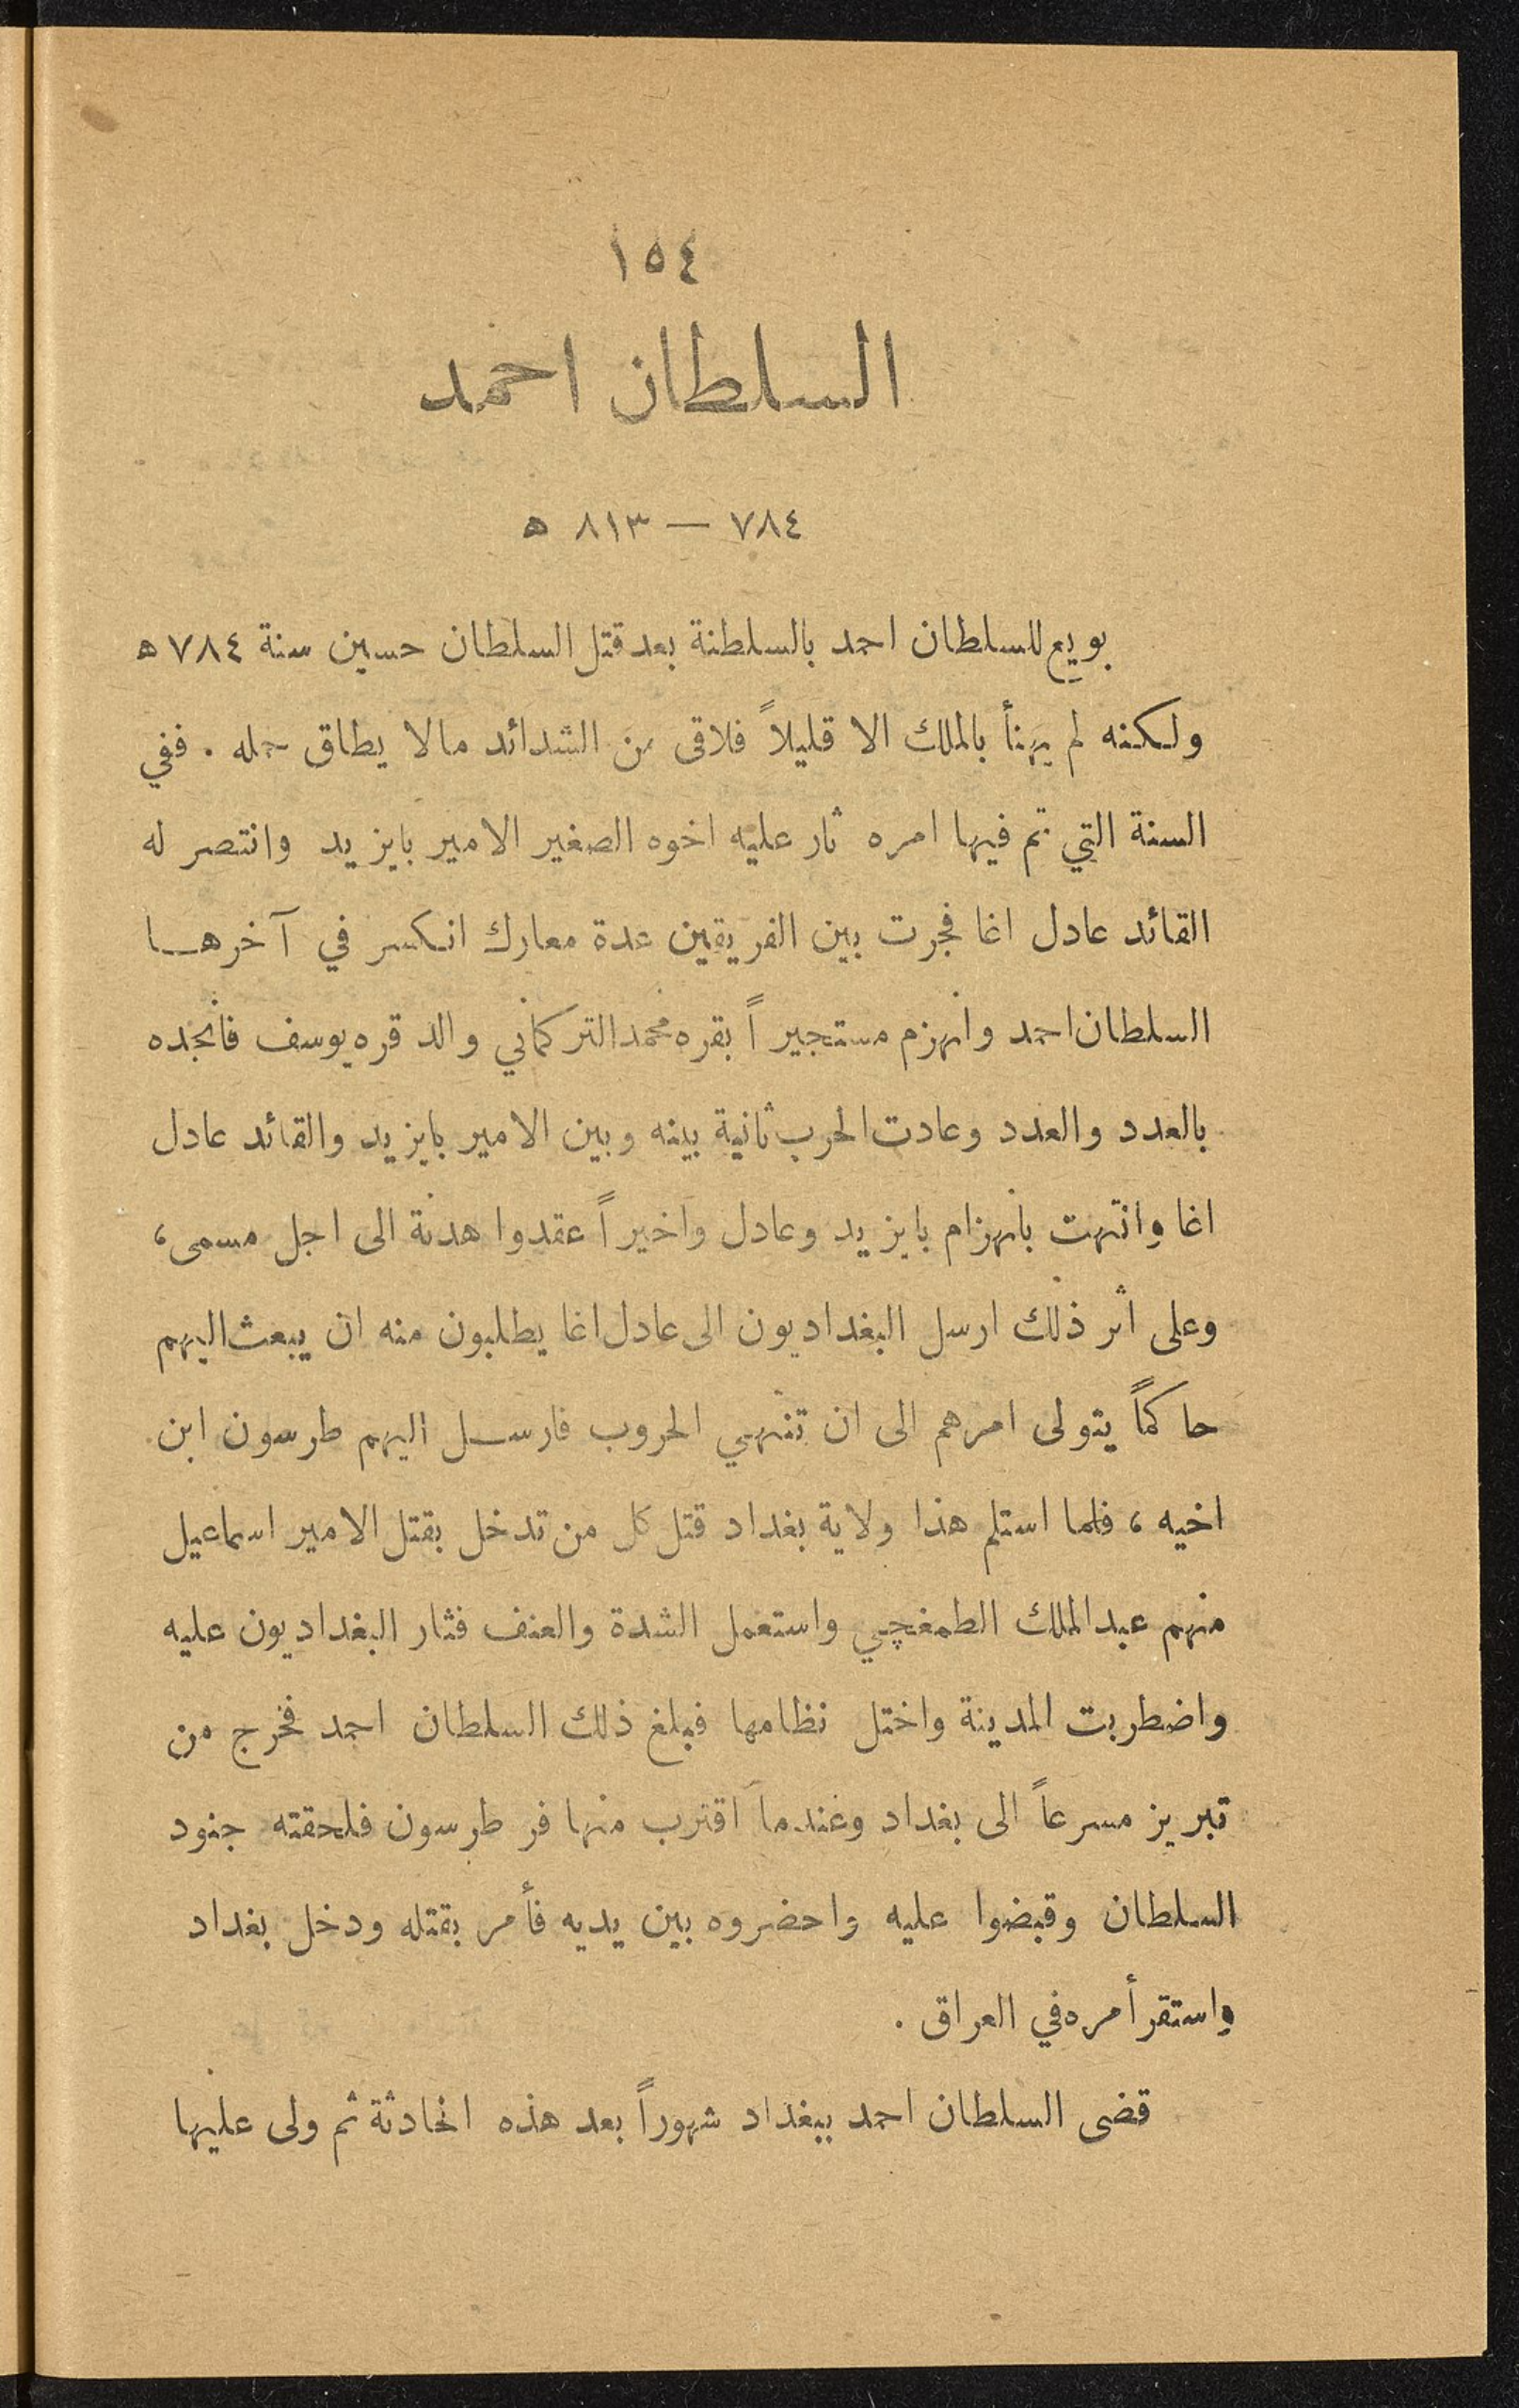 ١٥٤
السلطان احمد
٧٨٤ — ٨١٣ ه
بويع للسلطان احمد بالسلطنة بعد قتل السلطان حسين سنة ٧٨٤ ه
ولكنه لم يهنأ بالملك الا قليلاً فلاقى من الشدائد مالا يطاق حمله . ففي
السنة التي تم فيها امره ثار عليه اخوه الصغير الامير بايزيد وانتصر له
القائد عادل اغا فجرت بين الفريقين عدة معارك انكسر في آخرها
السلطان احمد وانهزم مستجيراً بقره محمد التركماني والد قره يوسف فانجده
بالعدد والعدد وعادت الحرب ثانية بينه وبين الامير بايزيد والقائد عادل
اغا وانتهت بانهزام بايزيد وعادل واخيراً عقدوا هدنة الى اجل مسمى ،
وعلى اثر ذلك ارسل البغداديون الى عادل اغا يطلبون منه ان يبعث اليهم
حاكماً يتولى امرهم الى ان تنتهي الحروب فارسل اليهم طرسون ابن
اخيه ، فلما استلم هذا ولاية بغداد قتل كل من تدخل بقتل الامير اسماعيل
منهم عبد الملك الطمغچي واستعمل الشدة والعنف فثار البغداديون عليه
واضطربت المدينة واختل نظامها فبلغ ذلك السلطان احمد فخرج من
تبريز مسرعاً الى بغداد وعندما اقترب منها فر طرسون فلحقته جنود
السلطان وقبضوا عليه واحضروه بين يديه فأمر بقتله ودخل بغداد
واستقر أمره في العراق .
قضى السلطان احمد ببغداد شهوراً بعد هذه الحادثة ثم ولى عليها